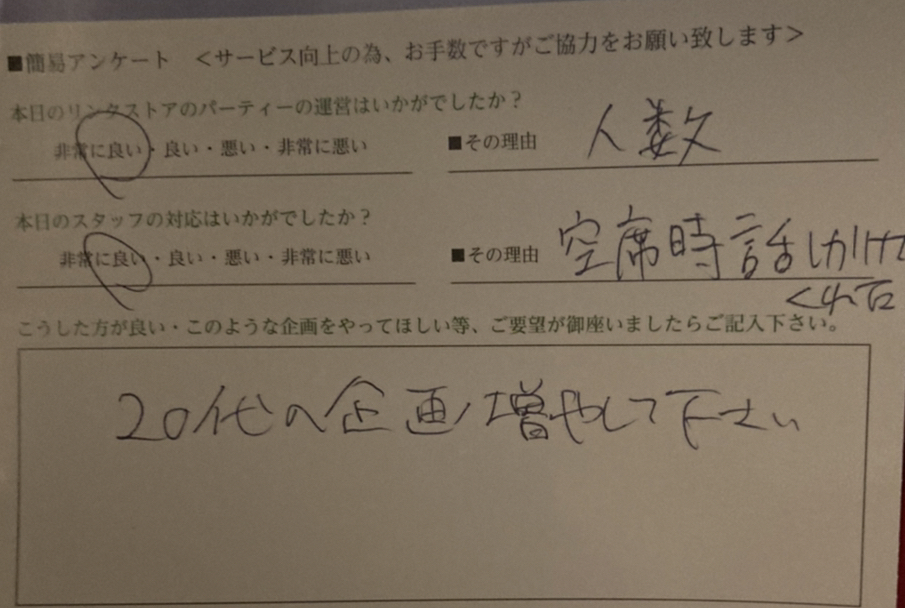 ■簡易アンケート <サービス向上の為、お手数ですがご協力をお願い致します>
本日のリンクストアのパーティーの運営はいかがでしたか？
非常に良い・良い・悪い・非常に悪い ■その理由 人数
本日のスタッフの対応はいかがでしたか？
非常に良い・良い・悪い・非常に悪い ■その理由 空席時話しかけ
くれた
こうした方が良い・このような企画をやってほしい等、ご要望が御座いましたらご記入下さい。
20代の企画増やして下さい